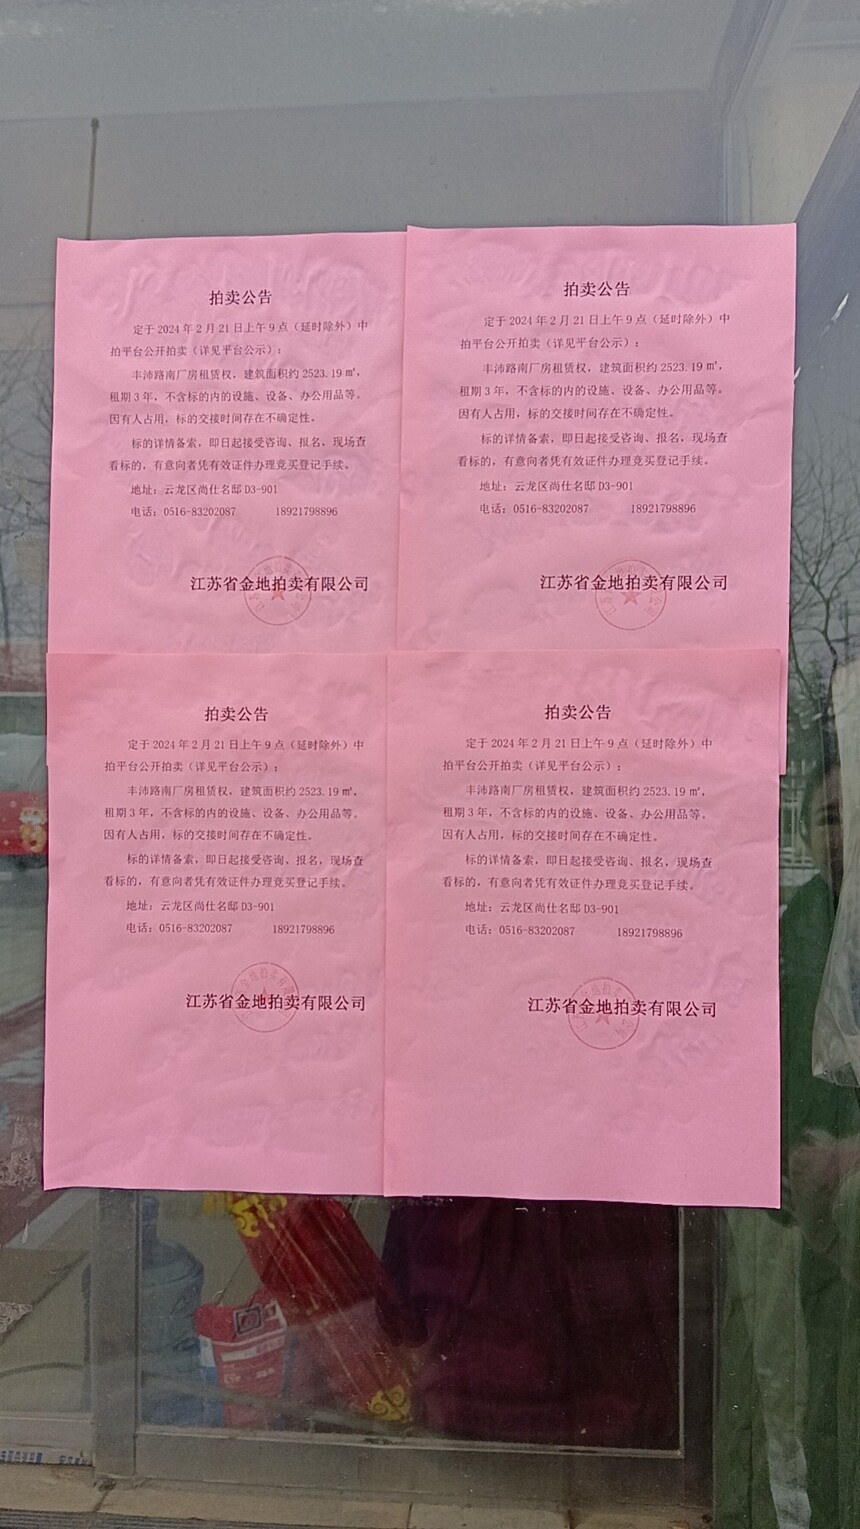 拍卖公告
定于2024年2月21日上午9点（延时除外）中
拍平台公开拍卖（详见平台公示）：
丰沛路南厂房租赁权，建筑面积约2523.19㎡，
租期3年，不含标的内的设施、设备、办公用品等。
因有人占用，标的交接时间存在不确定性。
标的详情备索，即日起接受咨询、报名，现场查
看标的，有意向者凭有效证件办理竞买登记手续。
地址：云龙区尚仕名邸D3-901
电话：0516-83202087 18921798896
江苏省金地拍卖有限公司
拍卖公告
定于2024年2月21日上午9点（延时除外）中
拍平台公开拍卖（详见平台公示）：
丰沛路南厂房租赁权，建筑面积约2523.19㎡，
租期3年，不含标的内的设施、设备、办公用品等。
因有人占用，标的交接时间存在不确定性。
标的详情备索，即日起接受咨询、报名，现场查
看标的，有意向者凭有效证件办理竞买登记手续。
地址：云龙区尚仕名邸D3-901
电话：0516-83202087 18921798896
江苏省金地拍卖有限公司
拍卖公告
定于2024年2月21日上午9点（延时除外）中
拍平台公开拍卖（详见平台公示）：
丰沛路南厂房租赁权，建筑面积约2523.19㎡，
租期3年，不含标的内的设施、设备、办公用品等。
因有人占用，标的交接时间存在不确定性。
标的详情备索，即日起接受咨询、报名，现场查
看标的，有意向者凭有效证件办理竞买登记手续。
地址：云龙区尚仕名邸D3-901
电话：0516-83202087 18921798896
江苏省金地拍卖有限公司
拍卖公告
定于2024年2月21日上午9点（延时除外）中
拍平台公开拍卖（详见平台公示）：
丰沛路南厂房租赁权，建筑面积约2523.19㎡，
租期3年，不含标的内的设施、设备、办公用品等。
因有人占用，标的交接时间存在不确定性。
标的详情备索，即日起接受咨询、报名，现场查
看标的，有意向者凭有效证件办理竞买登记手续。
地址：云龙区尚仕名邸D3-901
电话：0516-83202087 18921798896
江苏省金地拍卖有限公司